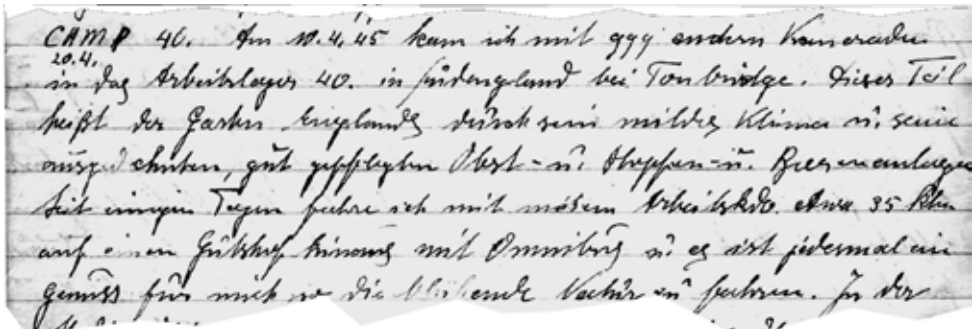 CAMP 40. Am 10.4.45 kam ich mit 999 andern Kameraden
20.4.
in das Arbeitslager 40. in Südengland bei Tonbridge. Dieser Teil
heißt der Garten Englands durch sein mildes Klima u. seine
ausgedehnten, gut gepflegten Obst- u. Hopfen- u. Beerenanlagen
Seit einigen Tagen fahre ich mit meinem Arbeitskdo. etwa 35 Klm
auf einen Gutshof hinaus mit Omnibus u. es ist jedesmal ein
genuss für mich so die blühende Natur zu fahren. In der